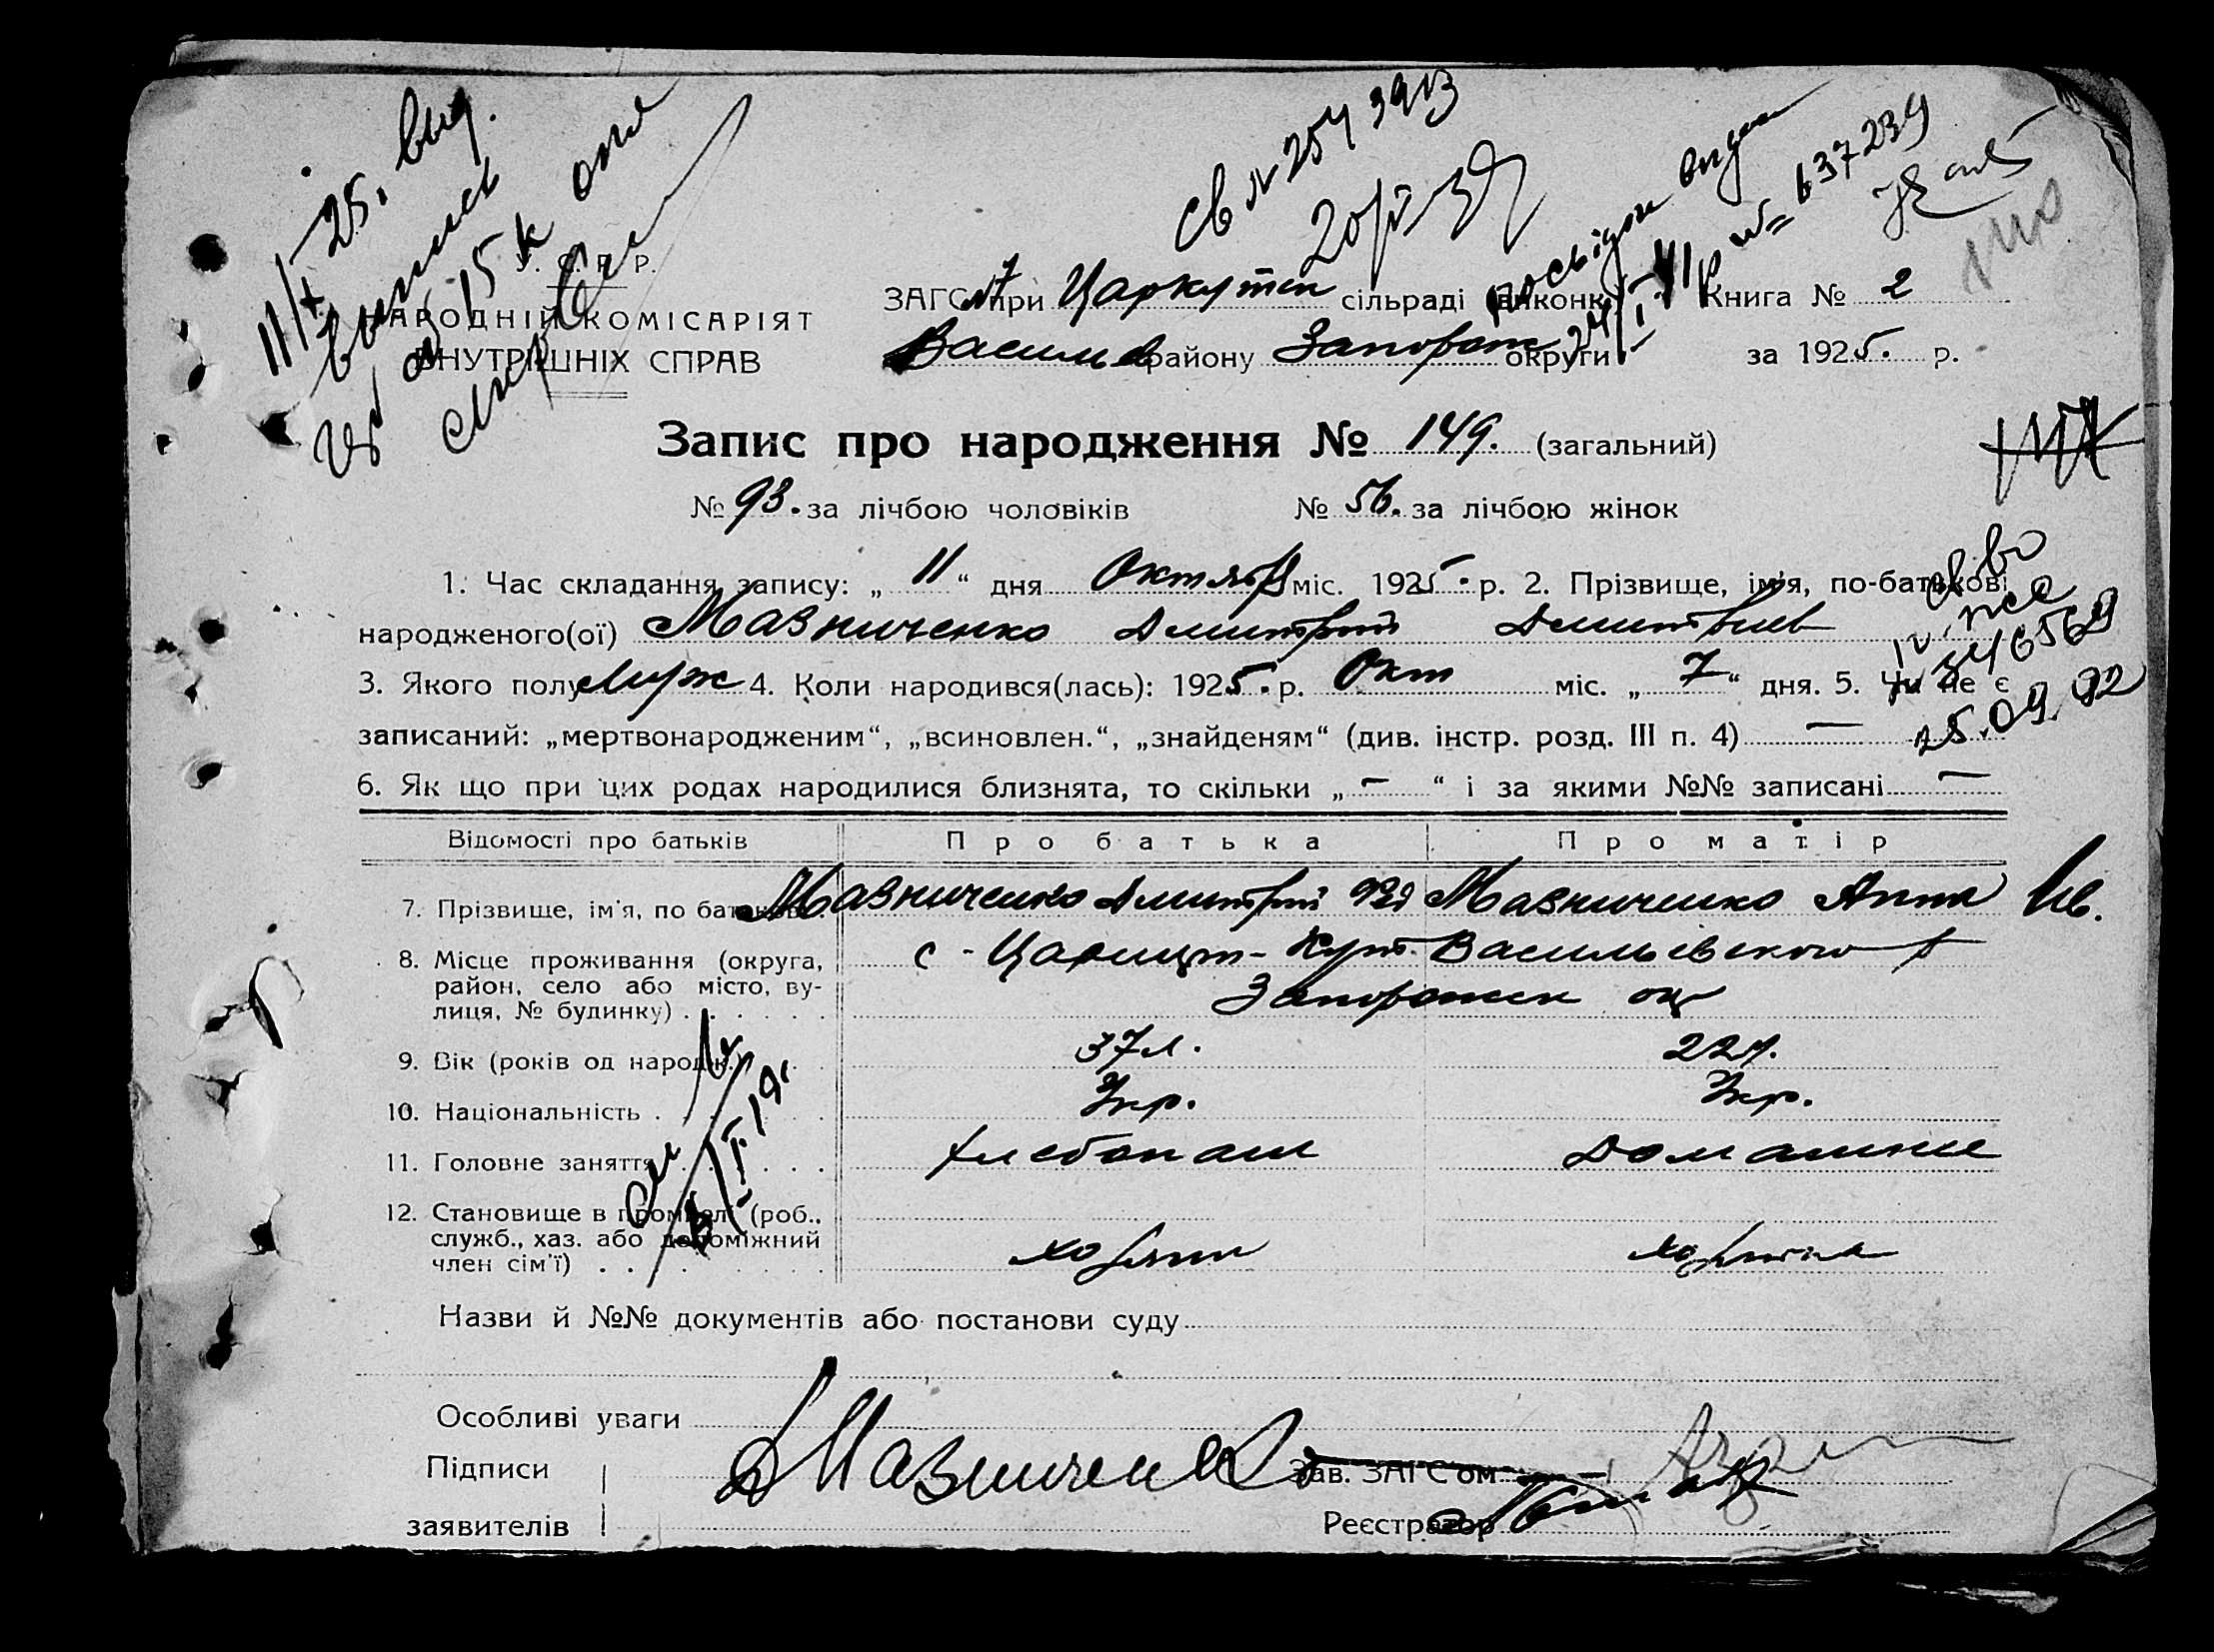 11/X-25. выд.
выпись
15 к
св № 254393
№ 637239
У. С. Р. Р.
НАРОДНІЙ КОМІСАРІЯТ
ВНУТРІШНІХ СПРАВ
ЗАГС при Царкутск сільраді Книга № 2
Васильев району Запорож округи за 1925. р.
Запис про народження № 149. (загальний)
№ 93. за лічбою чоловіків № 56. за лічбою жінок
1. Час складання запису: „ 11 “ дня Октября міс. 1925. р. 2. Прізвище, ім'я, по-батькові
народженого(ої) Мазниченко Дмитрий Дмитриев
3. Якого полу Муж 4. Коли народився(лась): 1925. р. Окт міс. „ 7 “ дня. 5. Чи не є
записаний: „мертвонародженим“, „всиновлен.“, „знайденям“ (див. інстр. розд. III п. 4) —
346569
25.09.92
6. Як що при цих родах народилися близнята, то скільки „ — “ і за якими №№ записані —
Відомості про батьків Про батька Про матір
7. Прізвище, ім'я, по батькові Мазниченко Дмитрий Мазниченко Анна Ив.
8. Місце проживання (округа, район, село або місто, вулиця, № будинку) с - Царицын-Кут. Васильівского р
Запорожск ок
9. Вік (років од народж.) 37 л. 22 л.
10. Національність Укр. Укр.
11. Головне заняття Хлебопаш Домашне
12. Становище в промислі (роб., служб., хаз. або допоміжний член сім'ї) хозяин хозяйка
Назви й №№ документів або постанови суду
Особливі уваги
Підписи заявителів Д Мазниченко
Зав. ЗАГС'ом
Реєстратор